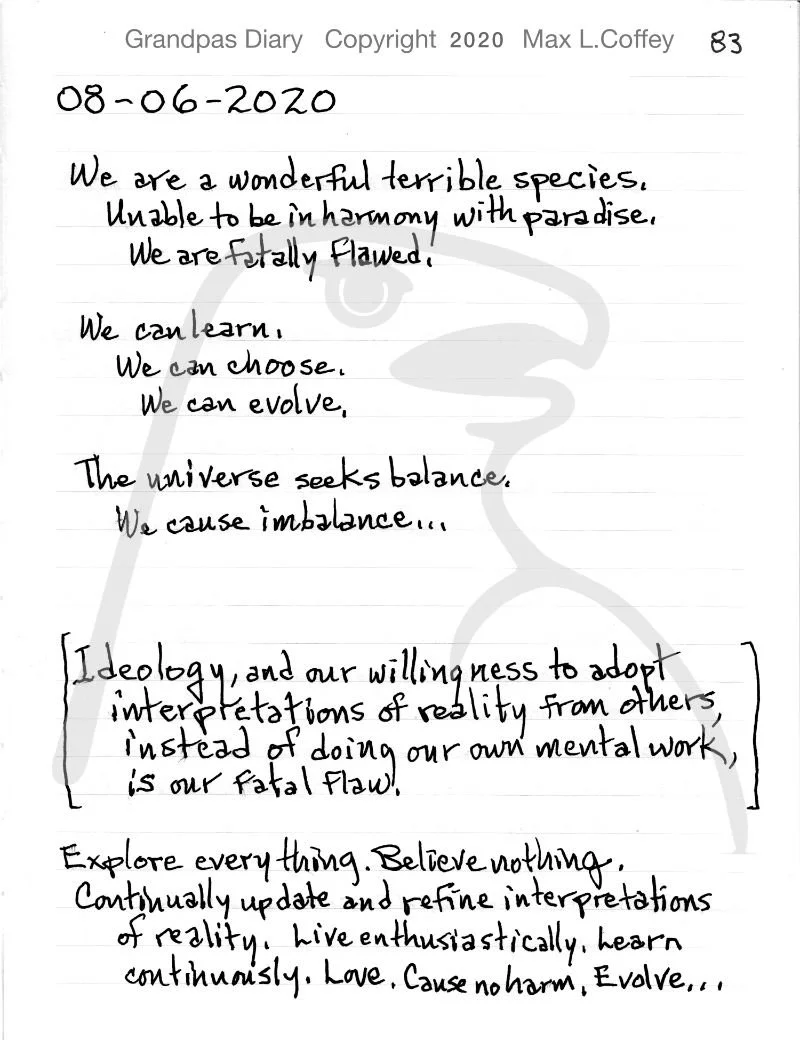 Grandpas Diary Copyright 2020 Max L.Coffey 83
08-06-2020
We are a wonderful terrible species.
Unable to be in harmony with paradise.
We are fatally flawed.
We can learn.
We can choose.
We can evolve.
The universe seeks balance.
We cause imbalance...
[Ideology, and our willingness to adopt
interpretations of reality from others,
instead of doing our own mental work,
is our fatal flaw.]
Explore everything. Believe nothing.
Continually update and refine interpretations
of reality. Live enthusiastically. Learn
continuously. Love. Cause no harm. Evolve...